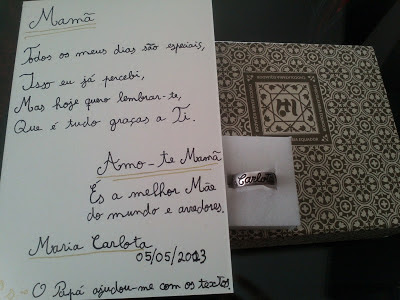 Mamã
Todos os meus dias são especiais,
Isso eu já percebi,
Mas hoje quero lembrar-te,
Que é tudo graças a Ti.
Amo-te Mamã
És a melhor Mãe
do mundo e arredores.
Maria Carlota
05/05/2013
O Papá ajudou-me com os textos
Carlota